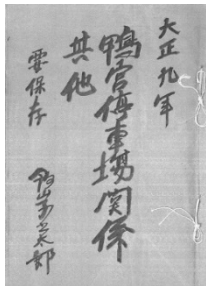 大正九年
鴨宮停車場関係
其他
要保存